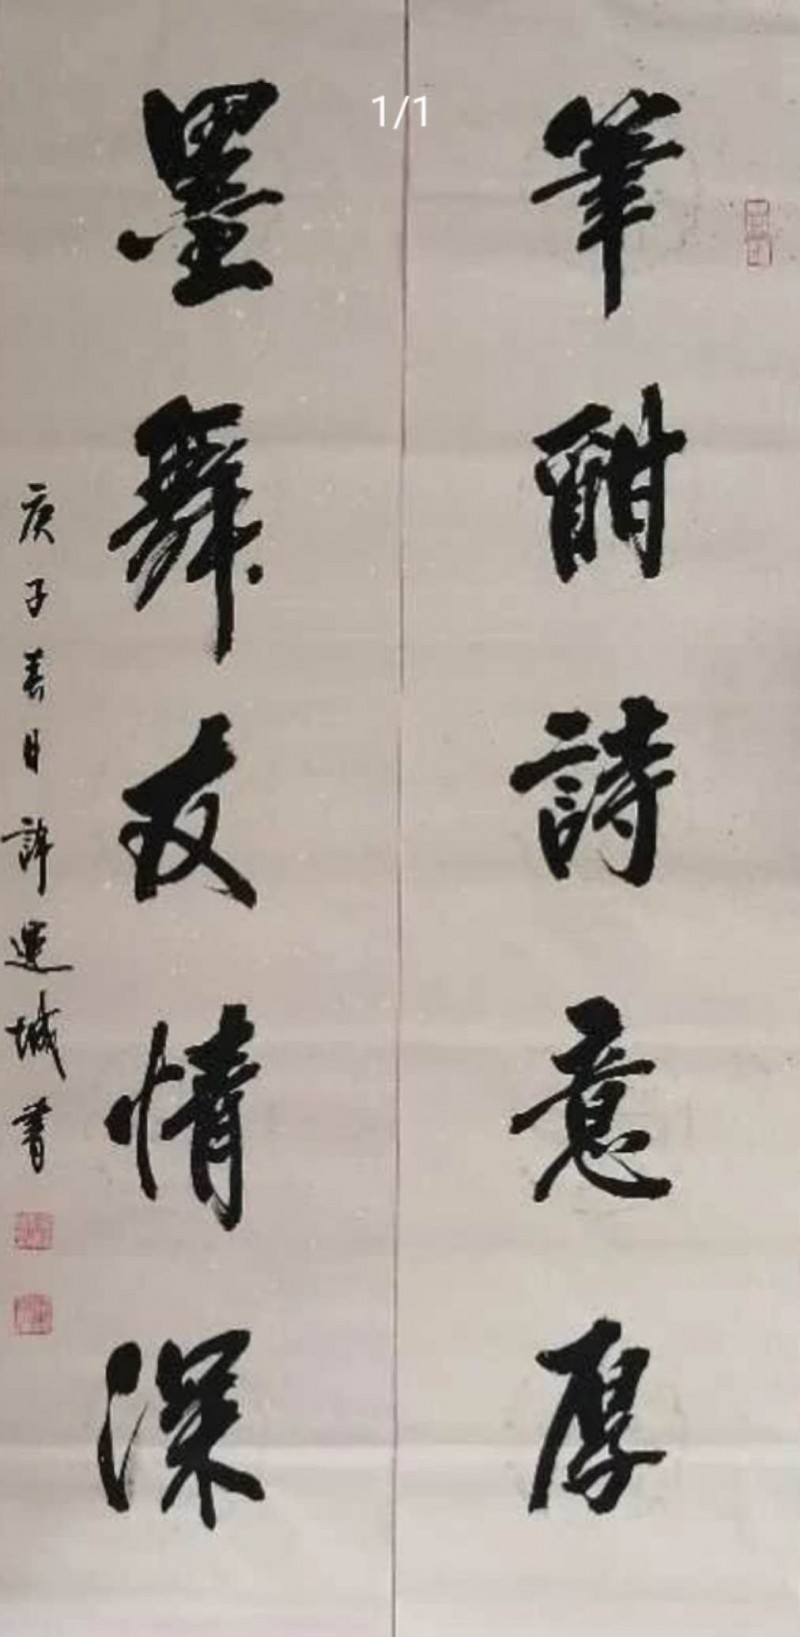 1/1
筆酣詩意厚
墨舞友情深
庚子春日許運城書